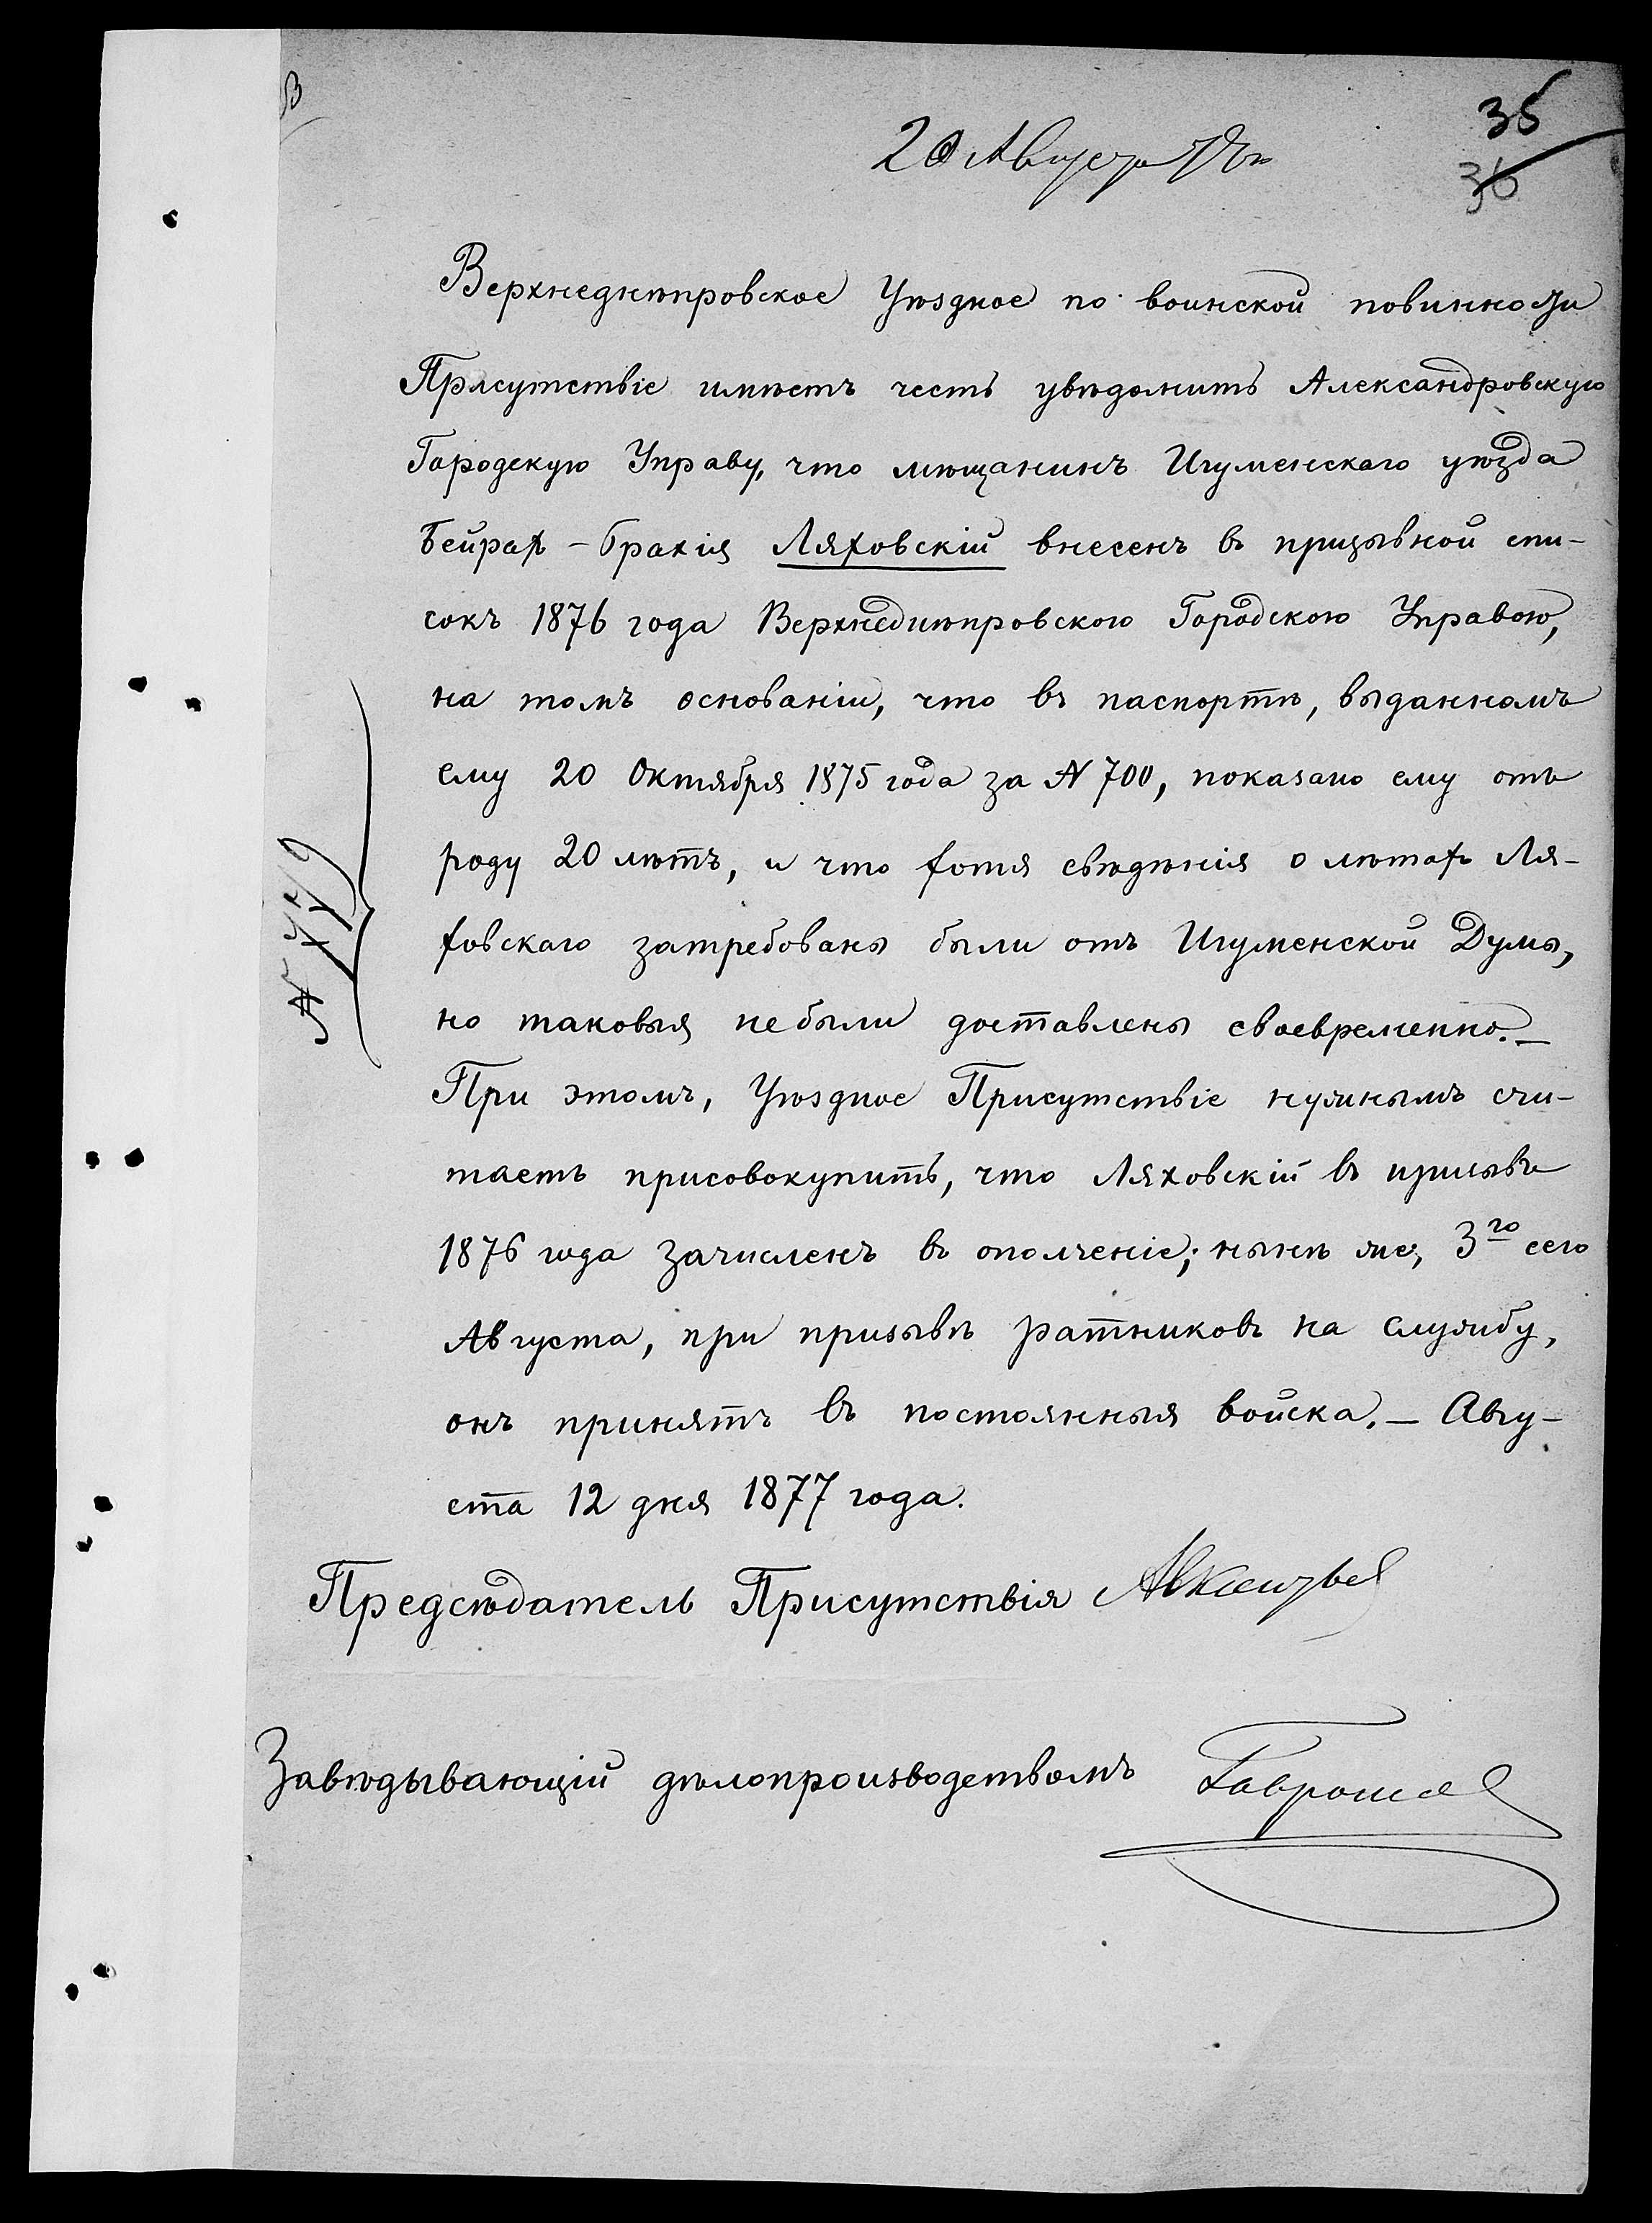 35
36
20 Августа 77 г.
Верхнеднѣпровское Уѣздное по воинской повинности
Присутствіе имѣетъ честь увѣдомить Александровскую
Городскую Управу, что мѣщанинъ Игуменскаго уѣзда
Бейрах-Брахія Ляховскій внесенъ въ призывной спи-
сокъ 1876 года Верхнеднѣпровскою Городскою Управою,
на томъ основаніи, что въ паспортѣ, выданномъ
ему 20 Октября 1875 года за № 700, показано ему отъ
роду 20 лѣтъ, и что хотя свѣдѣнія о лѣтах Ля-
ховскаго затребованы были отъ Игуменской Думы,
но таковыя не были доставлены своевременно.—
При этомъ, Уѣздное Присутствіе нужнымъ счи-
таетъ присовокупить, что Ляховскій въ призывъ
1876 года зачисленъ въ ополченіе; нынѣ же, 3го сего
Августа, при призывѣ ратниковъ на службу,
онъ принятъ въ постоянныя войска.— Авгу-
ста 12 дня 1877 года.
Предсѣдатель Присутствія
Завѣдывающій дѣлопроизводствомъ
№ 779